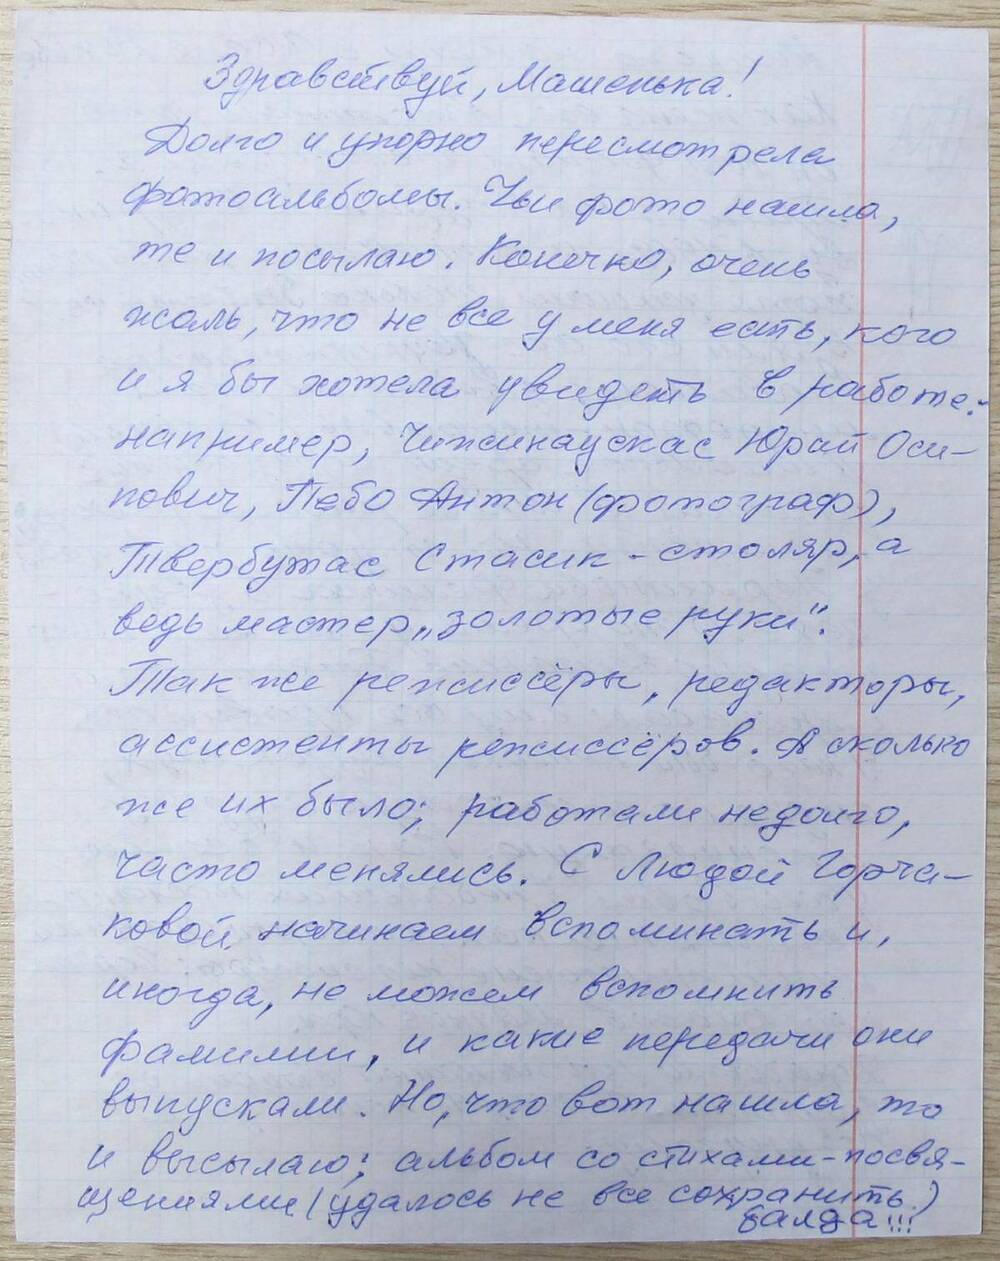 Здравствуй, Машенька!
Долго и упорно пересмотрела
фотоальбомы. Чьи фото нашла,
те и посылаю. Конечно, очень
жаль, что не все у меня есть, кого
и я бы хотела увидеть в работе:
например, Чижинаускас Юрай Оси-
пович, Пебо Антон (фотограф),
Твербутас Стасик - столяр, а
ведь мастер „золотые руки“.
Так же режиссёры, редакторы,
ассистенты режиссёров. А сколько
же их было; работали недолго,
часто менялись. С Людой Горча-
ковой начинаем вспоминать и,
иногда, не можем вспомнить
фамилии, и какие передачи они
выпускали. Но, что вот нашла, то
и высылаю; альбом со стихами-посвя-
щениями (удалось не все сохранить)
балда!!!